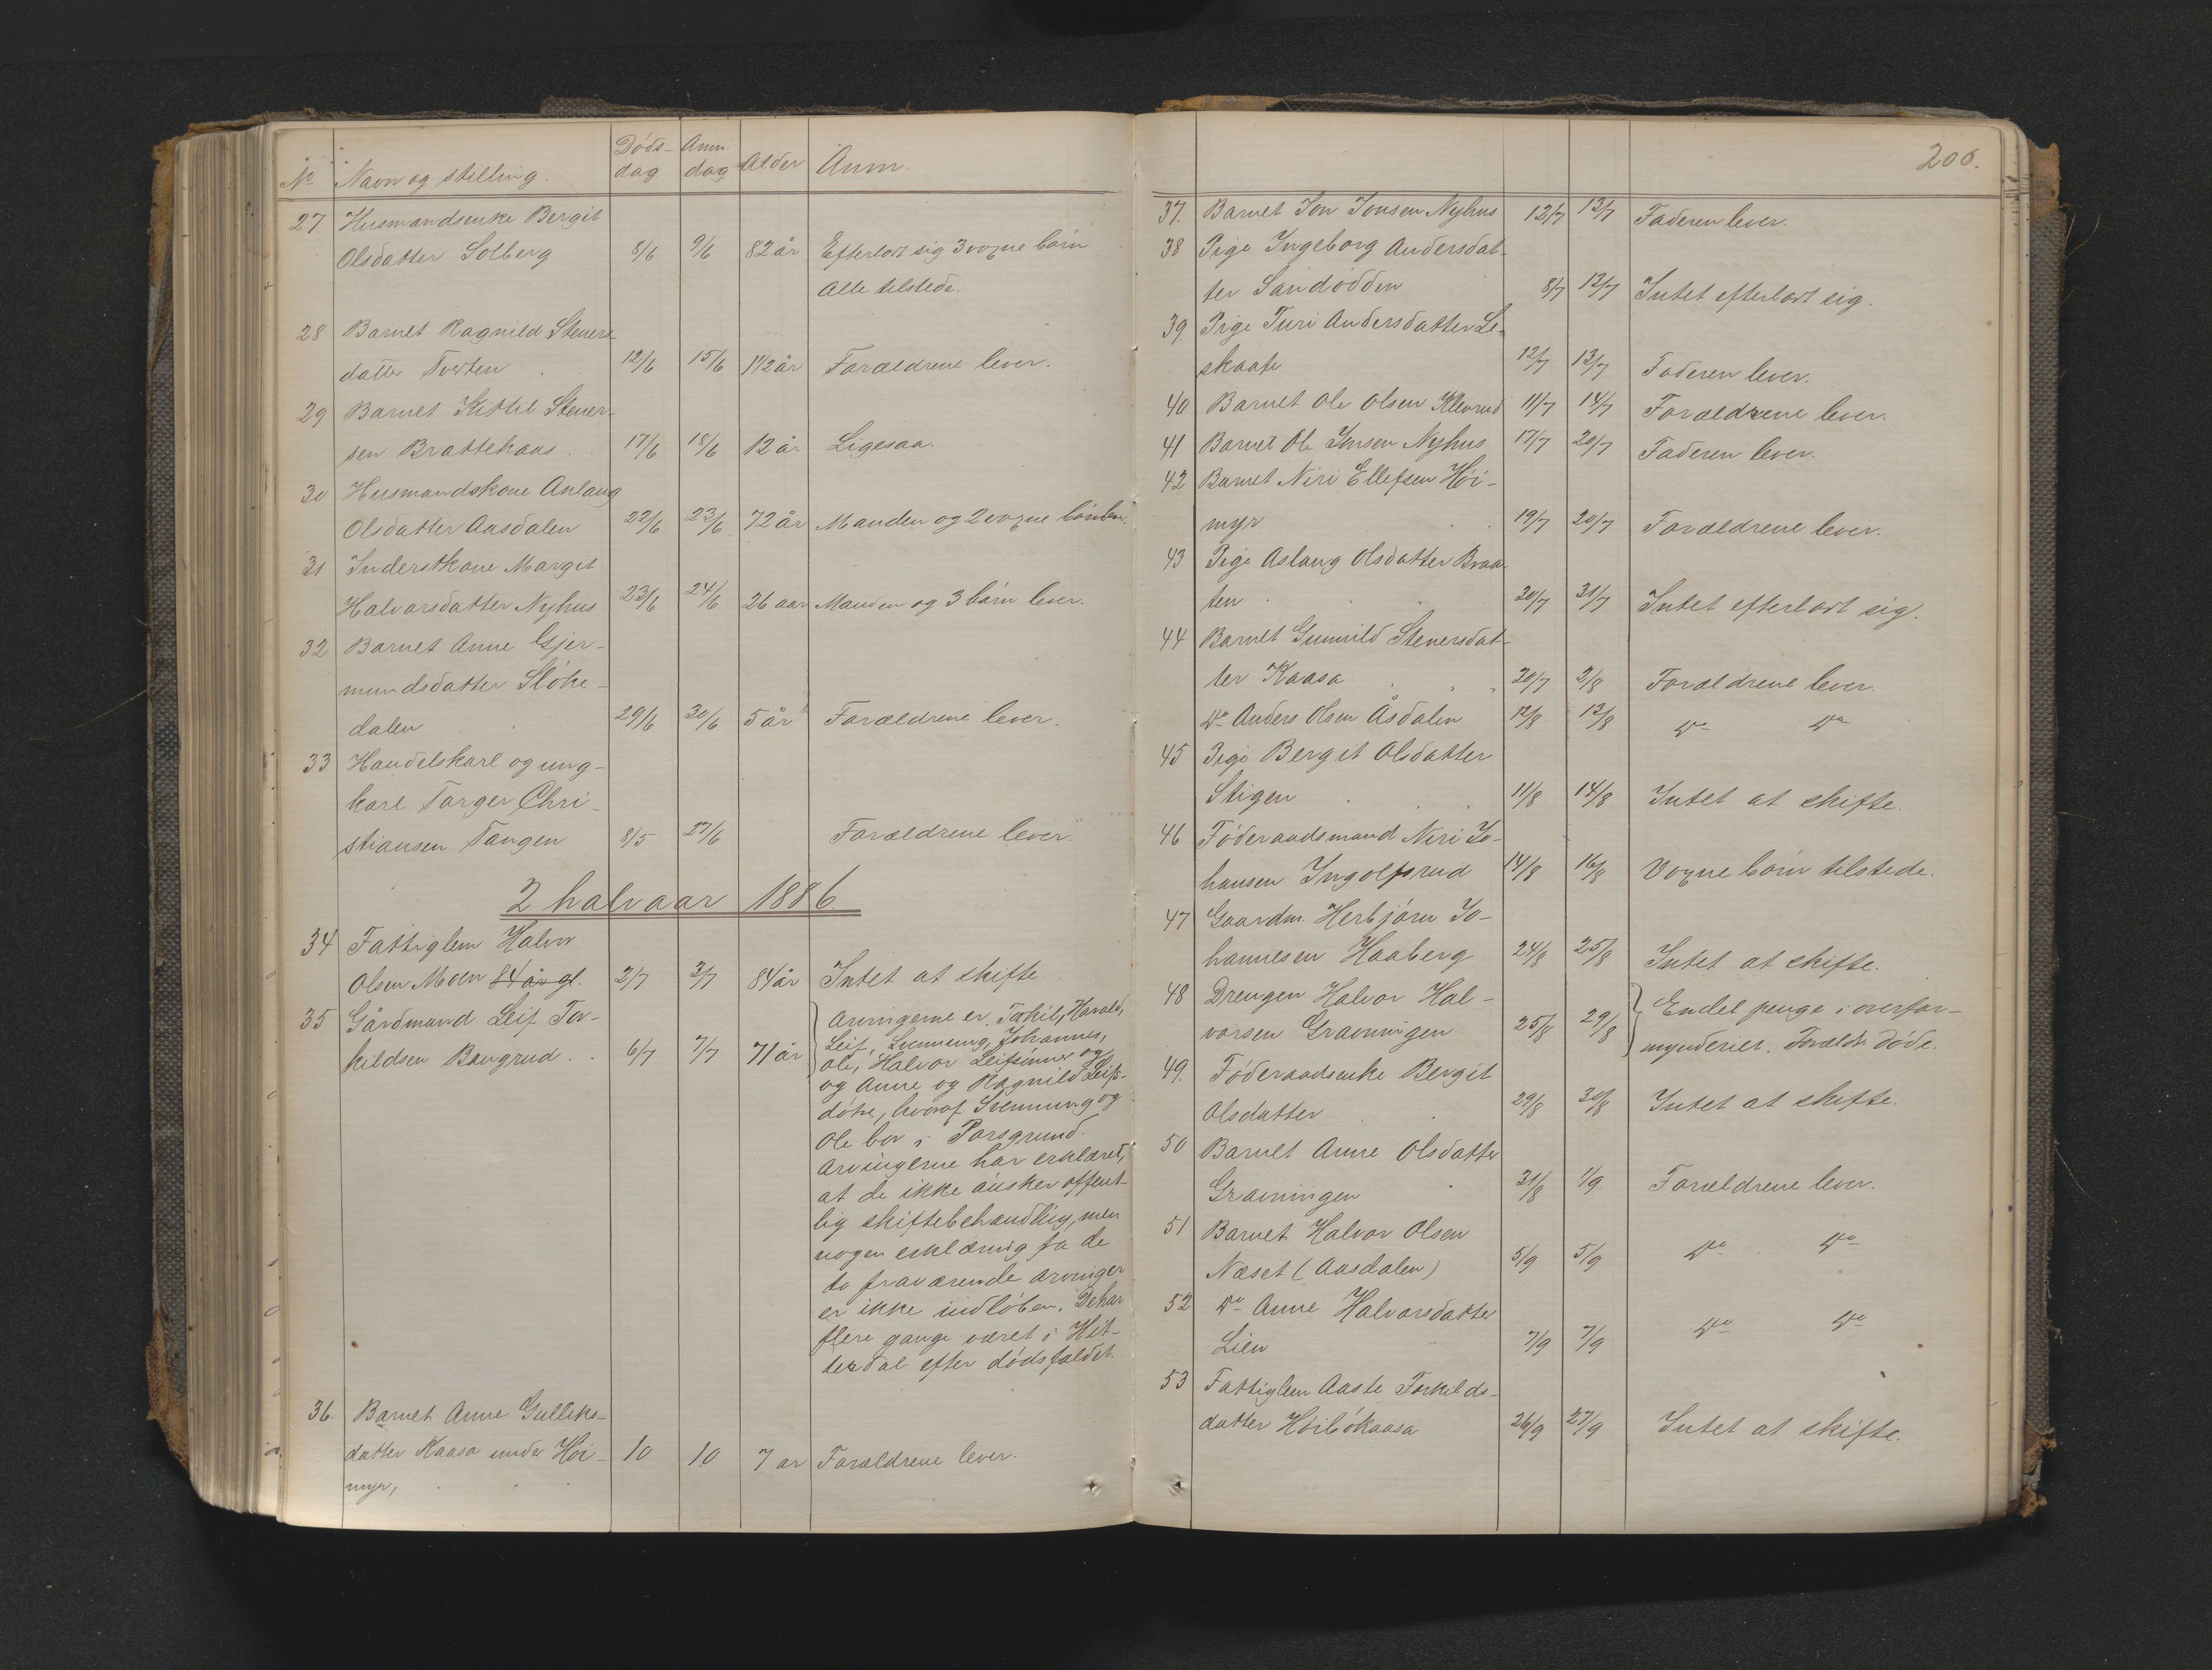 No Navn og stilling. Døds-dag Anm. dag Alder Anm.
27 Husmandsenke Bergit
Olsdatter Solberg 8/6 9/6 82 år Efterladt sig 3 voxne børn
Alle tilstede.
28 Barnet Ragnild Steners-
datter Tveten 12/6 15/6 1 1/2 år Forældrene lever.
29 Barnet Kittil Stener-
sen Brattekaas 17/6 18/6 12 år Ligesaa.
30 Husmandskone Aslaug
Olsdatter Aasdalen 22/6 23/6 72 år Manden og 2 voxne børn lever.
31 Inderstkone Margit
Halvorsdatter Nyhus 23/6 24/6 26 aar Manden og 3 børn lever.
32 Barnet Anne Gjer-
mundsdatter Støke-
dalen 29/6 30/6 5 år Forældrene lever.
33 Handelskarl og ung-
karl Torger Chri-
stiansen Tangen 8/5 27/6 Forældrene lever.
2 halvaar 1886.
34 Fattiglem Halvor
Olsen Moen 84 år gl. 2/7 3/7 84 år Intet at skifte
35 Gårdmand Leif Tor-
kildsen Baugrud 6/7 7/7 71 år
Arvingerne er Torkil, Harald,
Leif, Svennung, Johannes,
Ole, Halvor Leifsønner og
og Anne og Ragnild Leifs-
døtre, hvoraf Svennung og
Ole bor i Porsgrund.
Arvingerne har erklæret,
at de ikke ønsker offent-
lig skiftebehandling, men
nogen erklæring fra de
to fraværende arvinger
er ikke indløben. De har
flere gange været i Hit-
terdal efter dødsfaldet.
36. Barnet Anne Gulliks-
datter Kaasa under Høi- 10 10 7 ar Forældrene lever.
myr,
206.
37. Barnet Jon Jonsen Nyhus 12/7 13/7 Faderen lever.
38 Pige Ingeborg Andersdat-
ter Sandødden 8/7 13/7 Intet efterladt sig.
39 Pige Turi Andersdatter Le-
skaate 12/7 13/7 Faderen lever.
40 Barnet Ole Olsen Klevrud 11/7 14/7 Forældrene lever.
41 Barnet Ole Jonsen Nyhus 17/7 20/7 Faderen lever.
42 Barnet Niri Ellefsen Høi-
myr 19/7 20/7 Forældrene lever.
43 Pige Aslaug Olsdatter Braa-
ten 20/7 31/7 Intet efterladt sig.
44 Barnet Gunnild Stenersdat-
ter Kaasa 20/7 2/8 Forældrene lever.
Do Anders Olsen Åsdalen 12/8 13/8 Do Do
45 Pige Bergit Olsdatter
Stigen 11/8 14/8 Intet at skifte.
46 Føderaadsmand Niri Jo-
hansen Ingolfsrud 14/8 16/8 Voxne børn tilstede.
47 Gaardm. Herbjørn Jo-
hannesen Haaberg 24/8 25/8 Intet at skifte.
48 Drengen Halvor Hal-
vorsen Gravningen 25/8 29/8 Endel penge i overfor-
mynderiet. Forældr. døde.
49. Føderaadsenke Bergit
Olsdatter 29/8 30/8 Intet at skifte.
50 Barnet Anne Olsdatter
Gravningen 31/8 1/9 Forældrene lever.
51 Barnet Halvor Olsen
Næset (Aasdalen) 5/9 5/9 Do Do
52 Do Anne Halvorsdatter
Lien 7/9 7/9 Do Do
53 Fattiglem Aaste Torkilds-
datter Høibøkaasa 26/9 27/9 Intet at skifte.